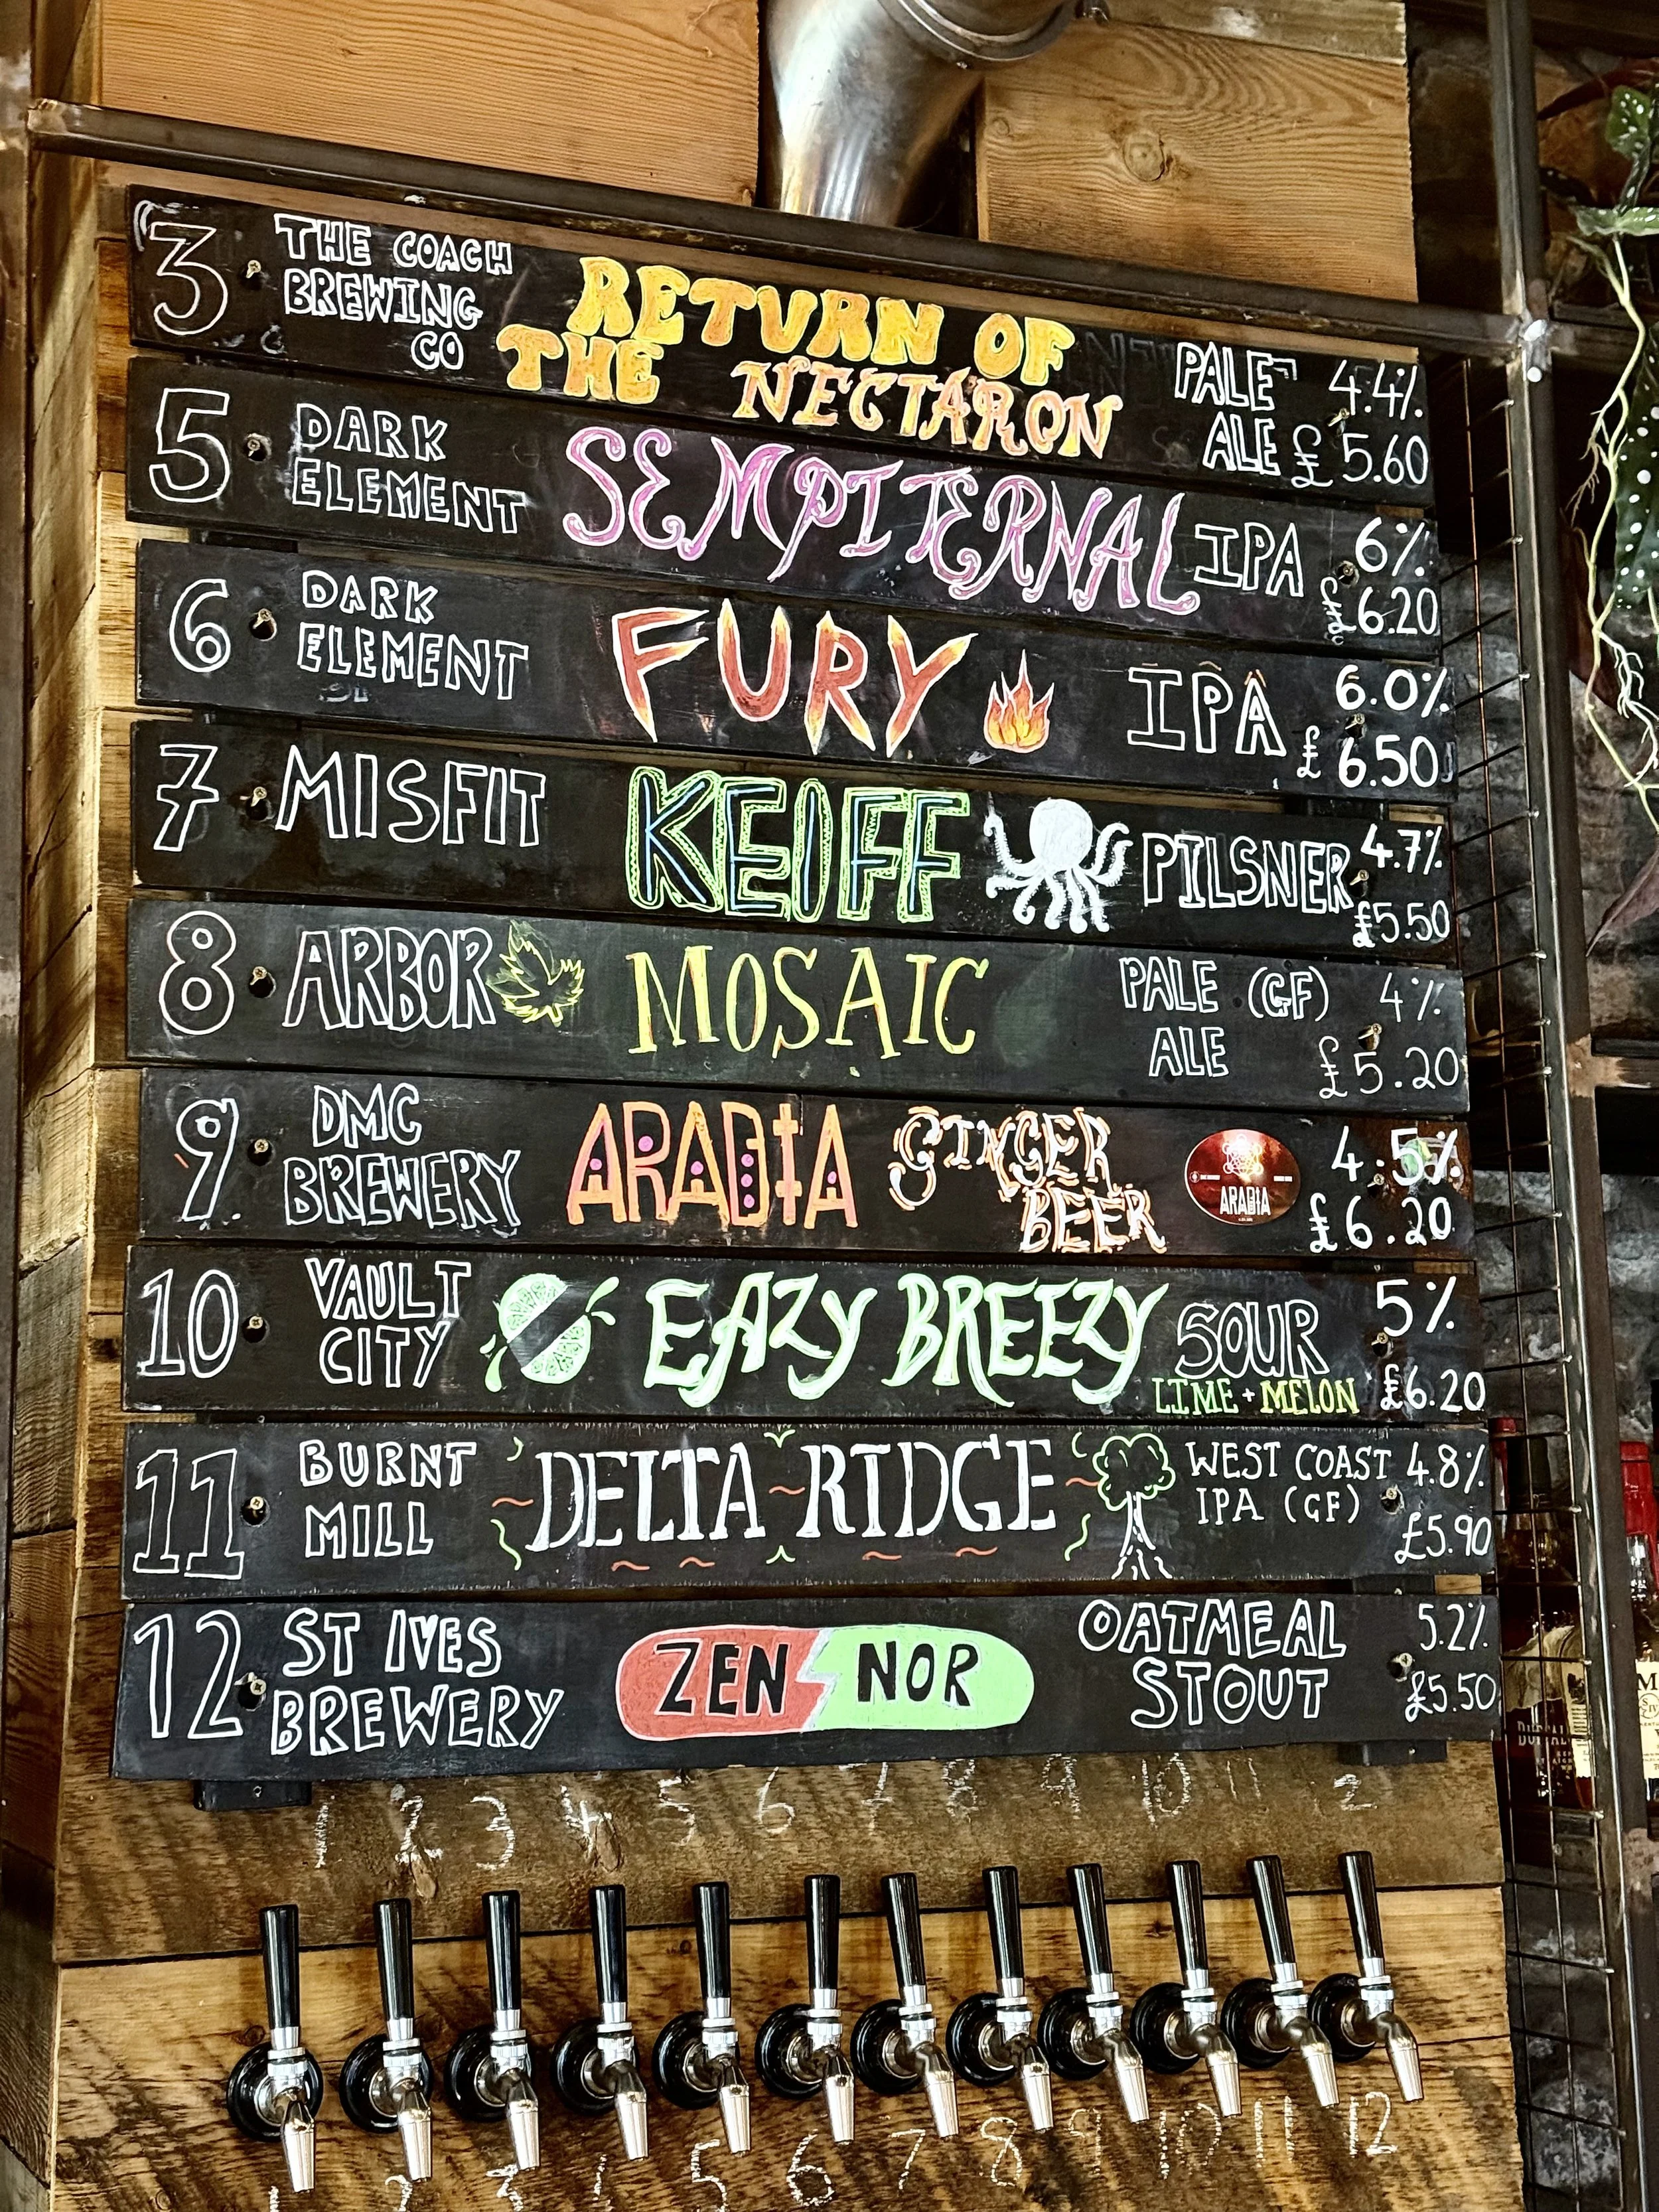 3 THE COACH
BREWING
CO
RETURN OF
THE NECTARON
PALE 4.4%
ALE £5.60
5 DARK
ELEMENT
SEMPITERNAL
IPA 6%
£6.20
6 DARK
ELEMENT
FURY
IPA 6.0%
£6.50
7 MISFIT
KEIFF
PILSNER 4.7%
£5.50
8 ARBOR
MOSAIC
PALE (GF) 4%
ALE £5.20
9 DMC
BREWERY
ARADIA
GINGER
BEER
ARADIA
4.5%
£6.20
10 VAULT
CITY
EAZY BREEZY
SOUR 5%
LIME + MELON £6.20
11 BURNT
MILL
DELTA RIDGE
WEST COAST 4.8%
IPA (GF)
£5.90
12 ST IVES
BREWERY
ZEN NOR
OATMEAL 5.2%
STOUT £5.50
1 2 3 4 5 6 7 8 9 10 11 12
5 6 7 8 9 10 11 12